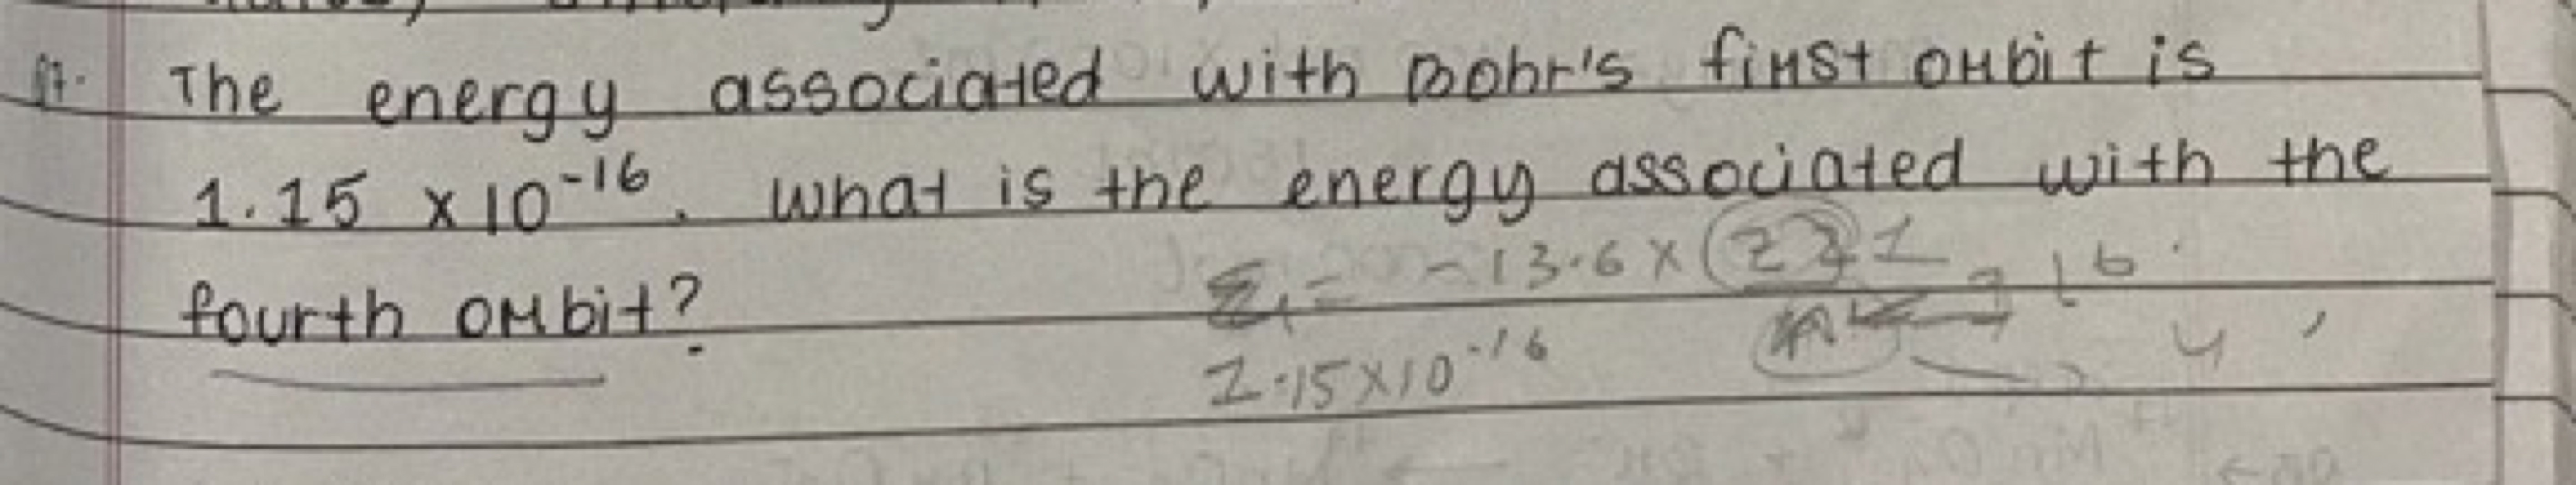 17. The energy associated with Bohr's first orbit is
1.15 x 10^-16. What is the energy associated with the
fourth orbit?
E1 = -13.6 x 1
16
4
1.15x10^-16